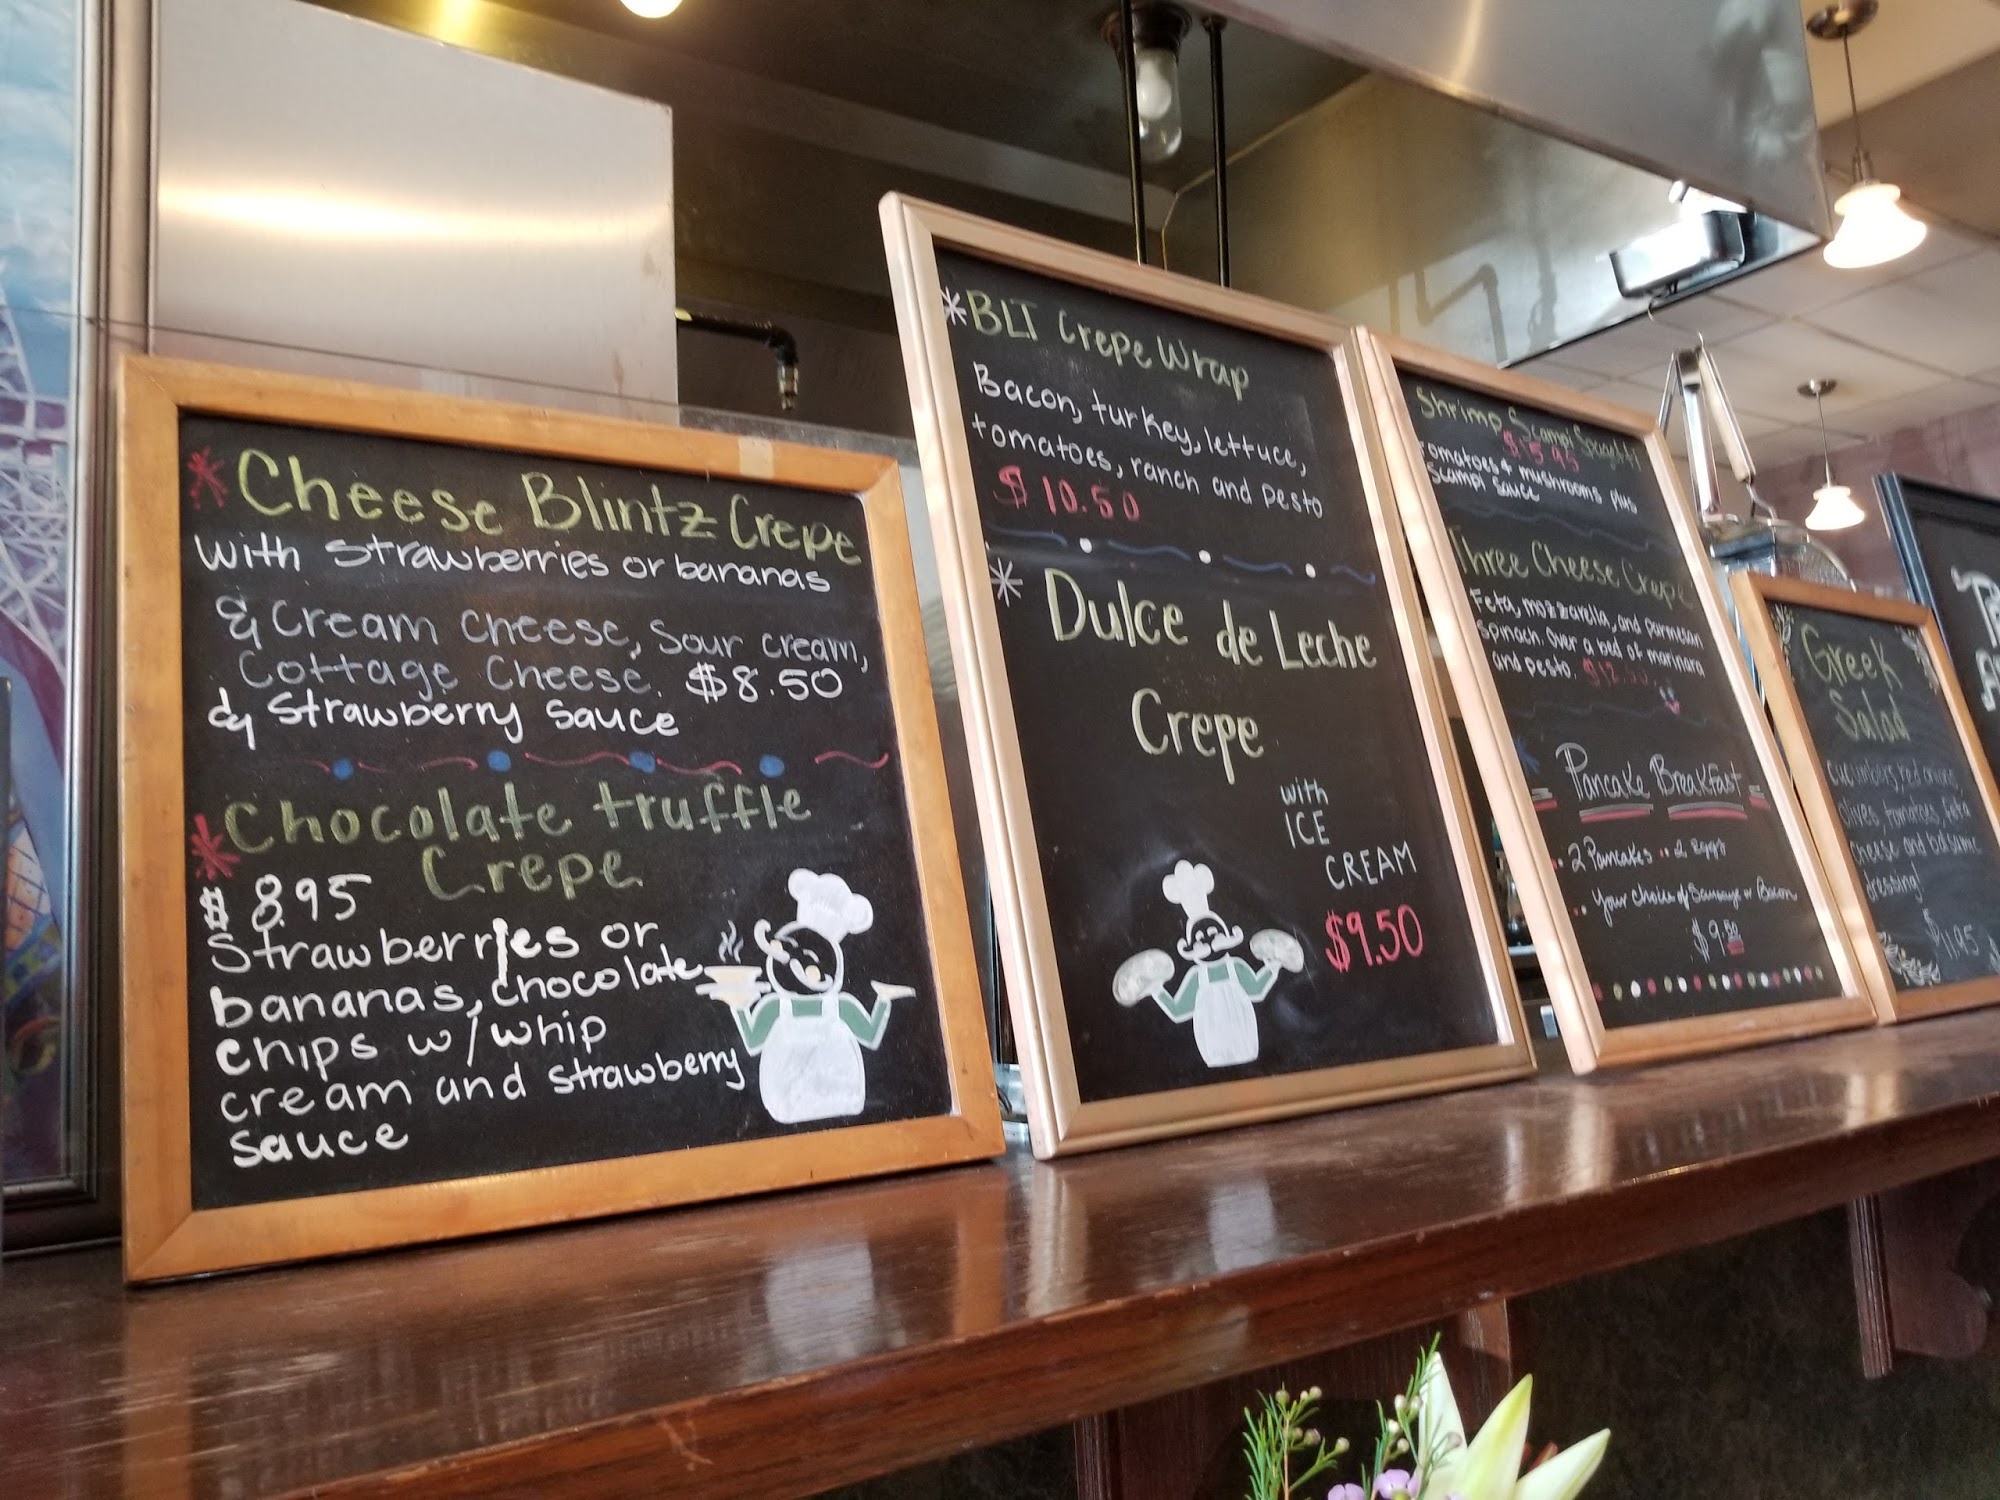 * Cheese Blintz Crepe
with strawberries or bananas
& cream cheese, sour cream,
Cottage Cheese. $8.50
& Strawberry sauce
* Chocolate truffle
Crepe
$8.95
Strawberries or
bananas, chocolate
chips w/whip
cream and strawberry
sauce
*BLT Crepe Wrap
Bacon, turkey, lettuce,
tomatoes, ranch and pesto
$10.50
* Dulce de Leche
Crepe
with
ICE
CREAM
$9.50
Shrimp Scampi Spagetti
tomatoes & mushrooms plus
Scampi sauce
Three Cheese Crepe
Feta, mozzarella, and parmesan
spinach. Over a bed of marinara
and pesto.
Pancake Breakfast
2 Pancakes 2 eggs
Your choice of Sausage or Bacon
$9.50
Greek
Salad
cucumbers, red onions,
olives, tomatoes, feta
cheese and balsamic
dressing!